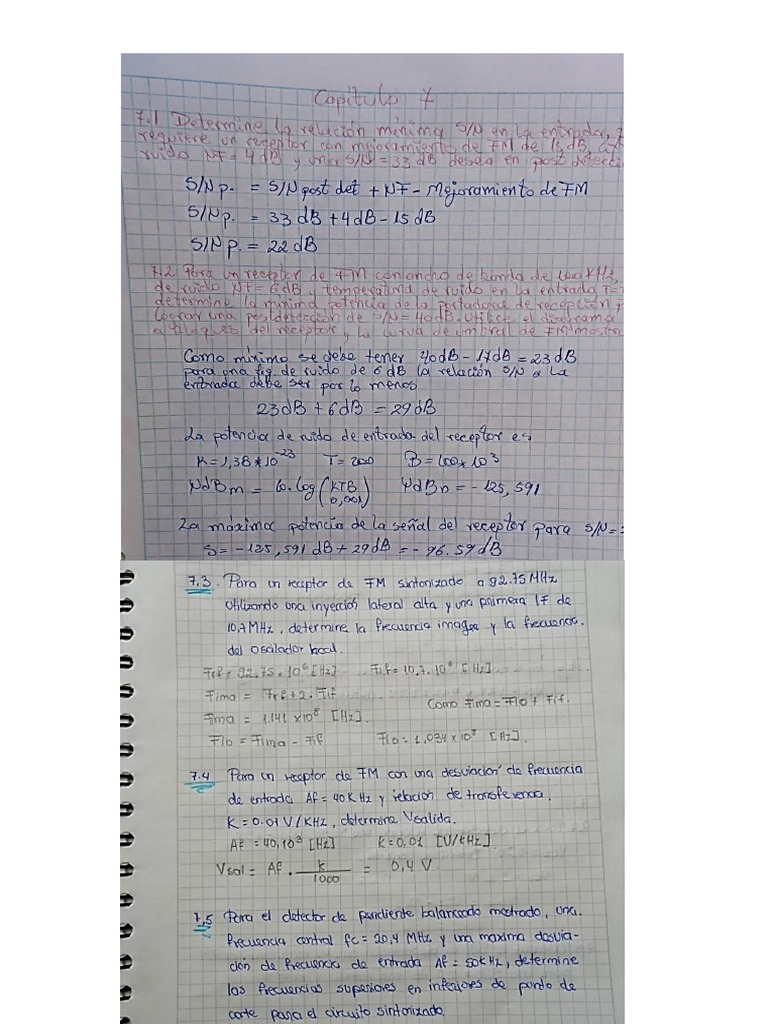 Capitulo 7
7.1 Determine la relación mínima S/N en la entrada,
requiere un receptor con mejoramiento de FM de 15 dB,
ruido NF = 4 dB y una S/N = 33 dB deseo en post detecc
S/N p. = S/N post det + NF - Mejoramiento de FM
S/N p. = 33 dB + 4 dB - 15 dB
S/N p. = 22 dB
7.2 Para un receptor de FM con ancho de banda de 100 KHz,
de ruido NF = 6 dB, temperatura de ruido en la entrada T =
determine la minima potencia de la portadora de recepción
lograr una postdetección de S/N = 40 dB. Utilice el diagrama
a bloques del receptor, la curva de umbral de FM mostra
Como mínimo se debe tener 40 dB - 17 dB = 23 dB
para una fig. de ruido de 6 dB la relación S/N a la
entrada debe ser por lo menos
23 dB + 6 dB = 29 dB
La potencia de ruido de entrada del receptor es
K = 1,38 * 10^-23 T = 200 B = 100 * 10^3
NdBm = 10.log(KTB / 0,001) NdBn = -125,591
La máxima potencia de la señal del receptor para S/N =
S = -125,591 dB + 29 dB = -96.59 dB
7.3. Para un receptor de FM sintonizado a 92.75 MHz
utilizando una inyección lateral alta y una primera IF de
10,7 MHz, determine la frecuencia imagen y la frecuencia.
del oscilador local.
Frf = 92.75 . 10^6 [Hz] Fif = 10,7 . 10^6 [Hz]
Fima = Frf + 2 . Fif
Como Fima = Flo + Fif.
Fima = 1.141 x 10^8 [Hz].
Flo = Fima - Fif Flo = 1,034 x 10^8 [Hz].
7.4 Para un receptor de FM con una desviación de frecuencia
de entrada Af = 40 KHz y relación de transferencia.
K = 0.01 V/KHz, determina Vsalida.
Af = 40,10^3 [Hz] K = 0,01 [V/kHz]
Vsal = Af . k / 1000 = 0,4 V.
7.5 Para el detector de pendiente balanceado mostrado, una.
frecuencia central fc = 20,4 MHz y una maxima desvia-
ción de frecuencia de entrada Af = 50 KHz, determine
las frecuencias superiores en inferiores de punto de
corte para el circuito sintonizado.